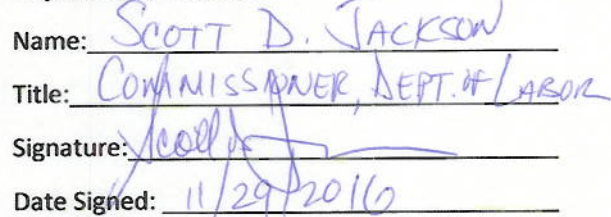 Name: SCOTT D. JACKSON
Title: COMMISSIONER, DEPT. OF LABOR
Signature: Scott
Date Signed: 11/29/2016